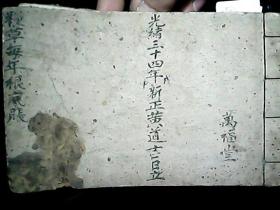 萬福堂
光緒三十四年新正黃道吉日立
粮草每年根底賬